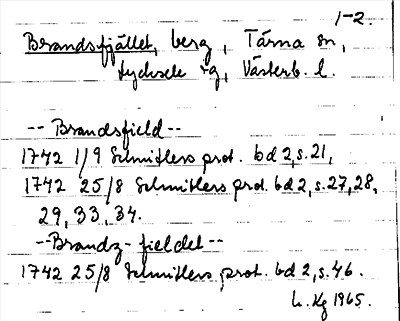 1-2.
Brandsfjället, berg, Tärna sn,
Lycksele tg, Västerb. l.
-- Brandsfield --
1742 1/9 Schnitlers prot. bd 2, s. 21,
1742 25/8 Schnitlers prot. bd 2, s. 27, 28,
29, 33, 34.
-- Brandz-fieldet --
1742 25/8 Schnitlers prot. bd 2, s. 46.
L. Kg 1965.